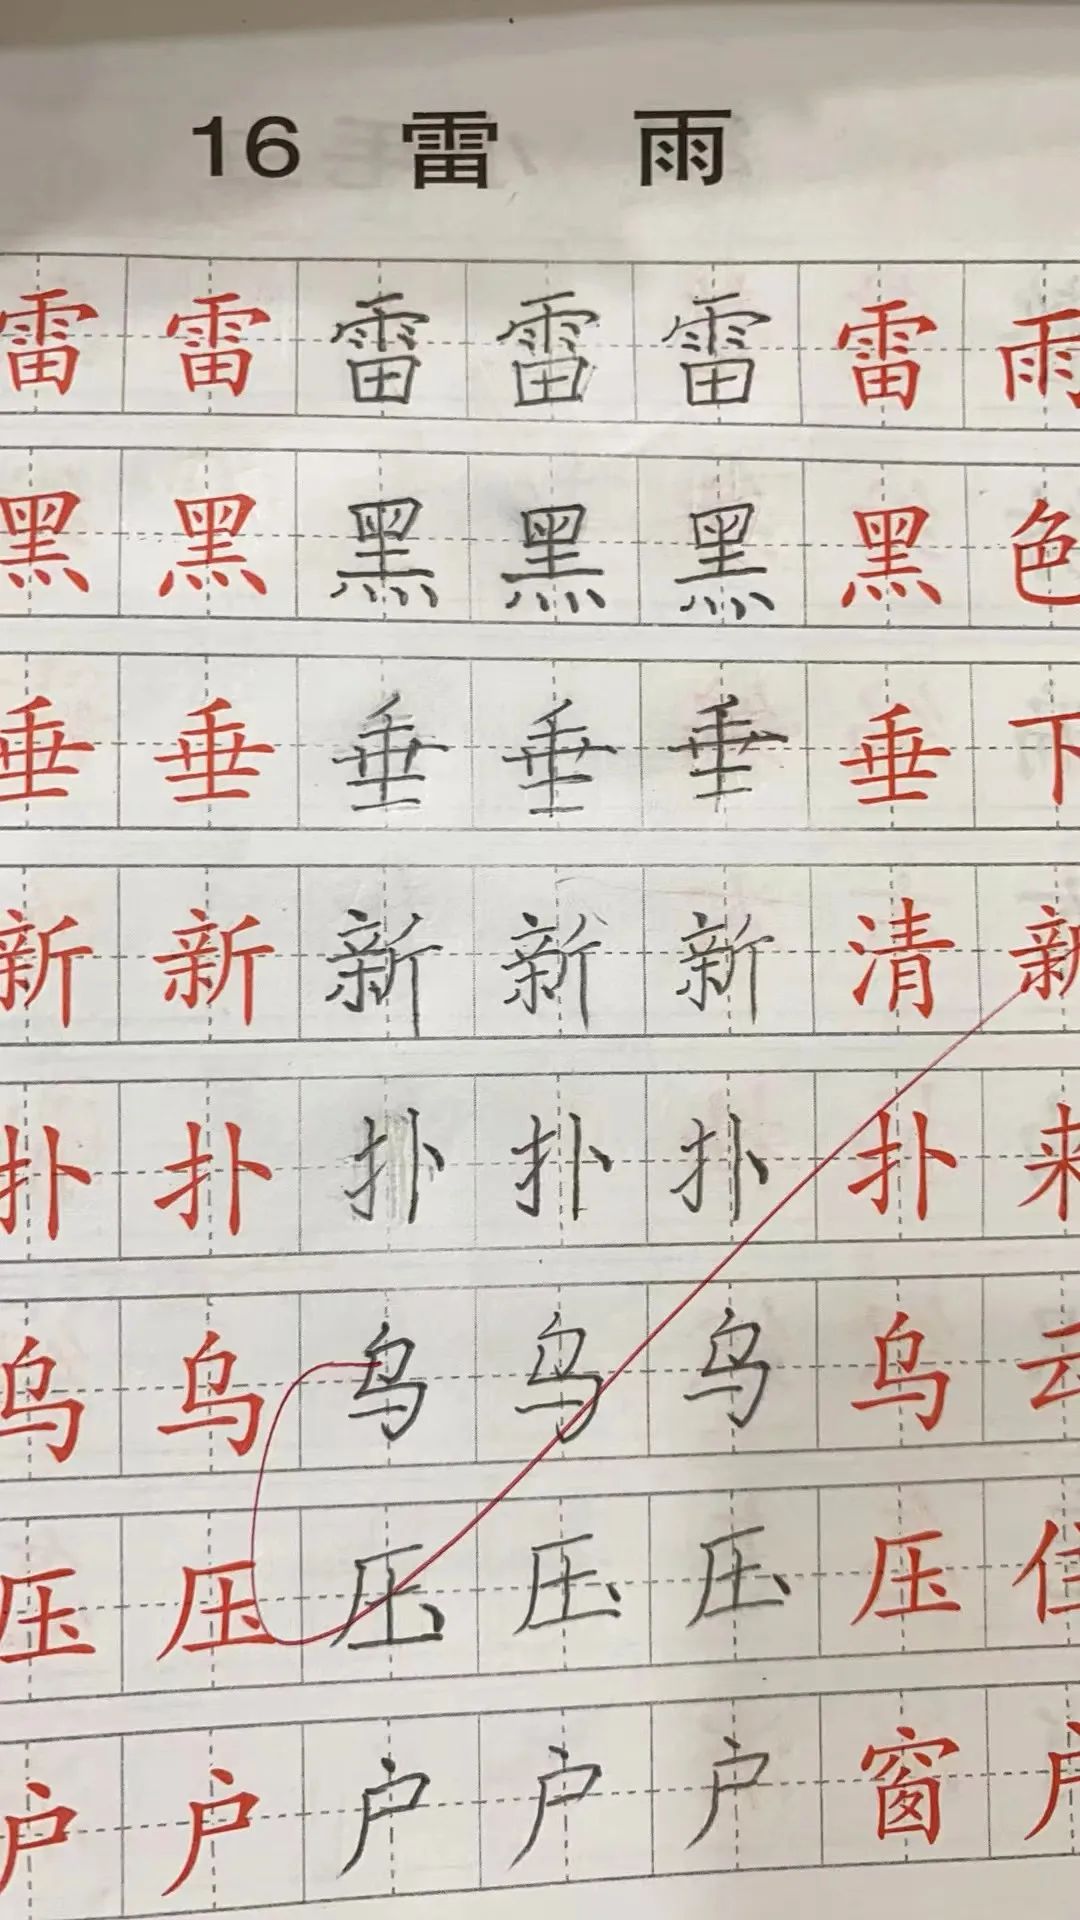 16 雷 雨
雷 雷 雷 雷 雷 雷 雨
黑 黑 黑 黑 黑 黑 色
垂 垂 垂 垂 垂 垂 下
新 新 新 新 新 清 新
扑 扑 扑 扑 扑 扑 来
乌 乌 乌 乌 乌 乌 云
压 压 压 压 压 压
户 户 户 户 户 窗 户